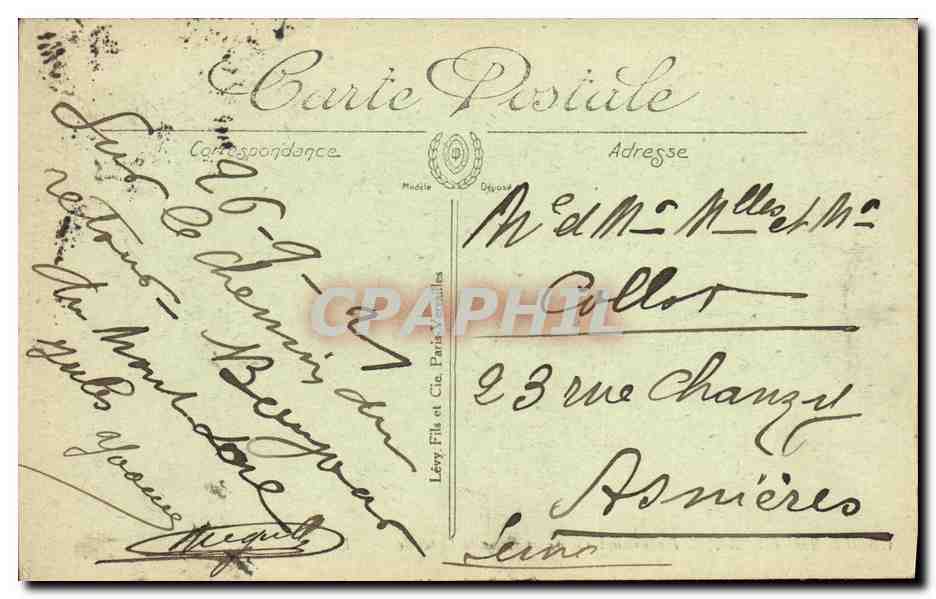 Carte Postale
Correspondance
Adresse
Modèle Déposé
26-9-21
Sur le chemin du
retour - Bons
du Mont dore
Jules Yvonne
Lévy Fils et Cie, Paris-Versailles
Me et Mr Mlles et Mr
Collot
23 rue Chanzy
Asnières
Seine
CPAPHIL